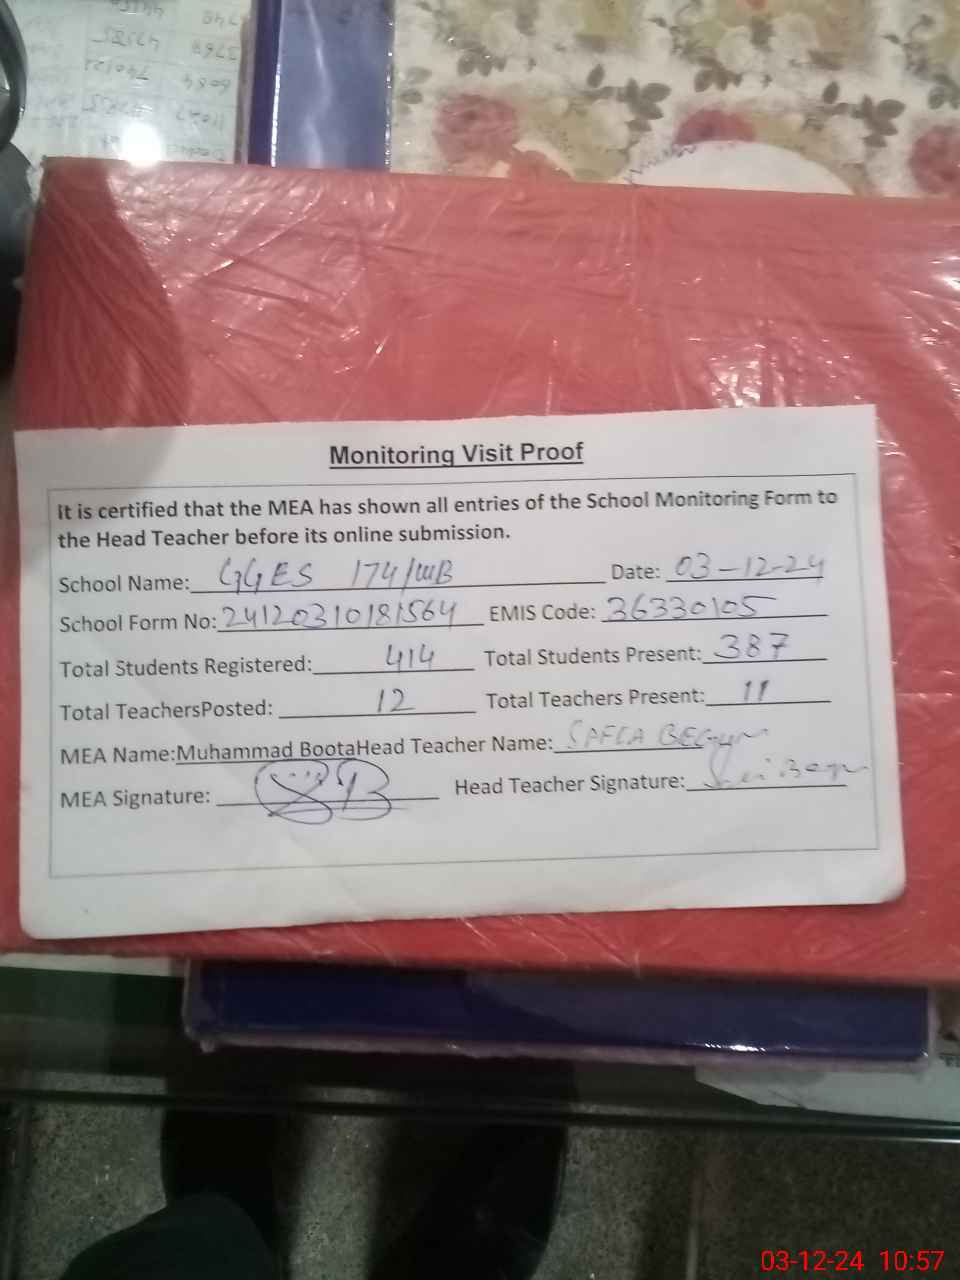 Monitoring Visit Proof
It is certified that the MEA has shown all entries of the School Monitoring Form to
the Head Teacher before its online submission.
School Name: GGES 174/WB Date: 03-12-24
School Form No: 24120310181564 EMIS Code: 36330105
Total Students Registered: 414 Total Students Present: 387
Total TeachersPosted: 12 Total Teachers Present: 11
MEA Name:Muhammad BootaHead Teacher Name: BEGUM
MEA Signature: Head Teacher Signature:
03-12-24 10:57